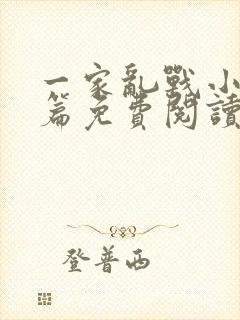 一家亂戰小
篇免費閱讀
登普西